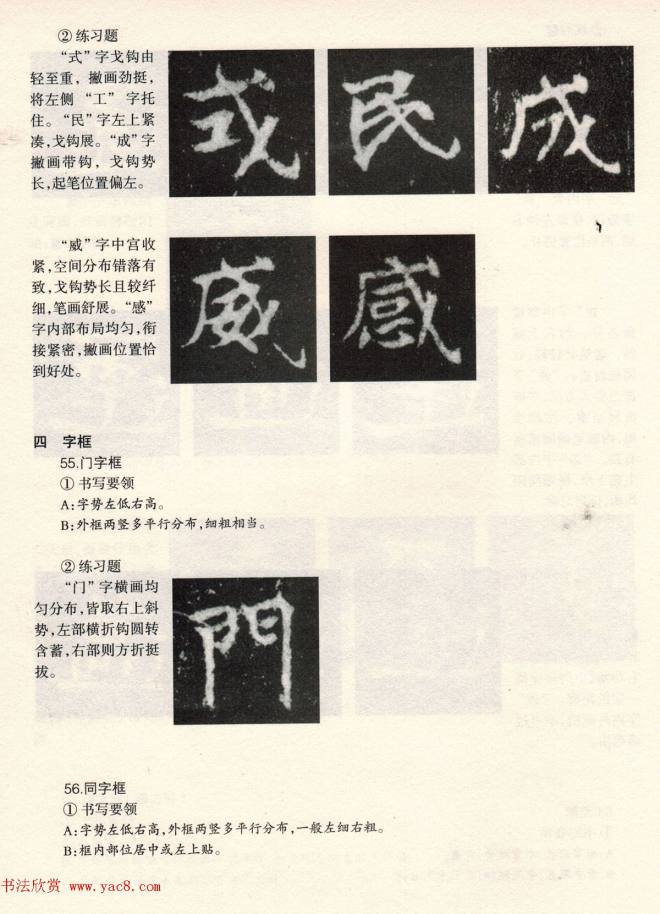 ② 练习题
“式”字戈钩由
轻至重，撇画劲挺，
将左侧“工”字托
住。“民”字左上紧
凑，戈钩展。“成”字
撇画带钩，戈钩势
长，起笔位置偏左。
式 民 成
“威”字中宫收
紧，空间分布错落有
致，戈钩势长且较纤
细，笔画舒展。“感”
字内部布局均匀，衔
接紧密，撇画位置恰
到好处。
威 感
四 字框
55.门字框
① 书写要领
A：字势左低右高。
B：外框两竖多平行分布，细粗相当。
② 练习题
“门”字横画均
匀分布，皆取右上斜
势，左部横折钩圆转
含蓄，右部则方折挺
拔。
門
56.同字框
① 书写要领
A：字势左低右高，外框两竖多平行分布，一般左细右粗。
B：框内部位居中或左上贴。
书法欣赏 www.yac8.com